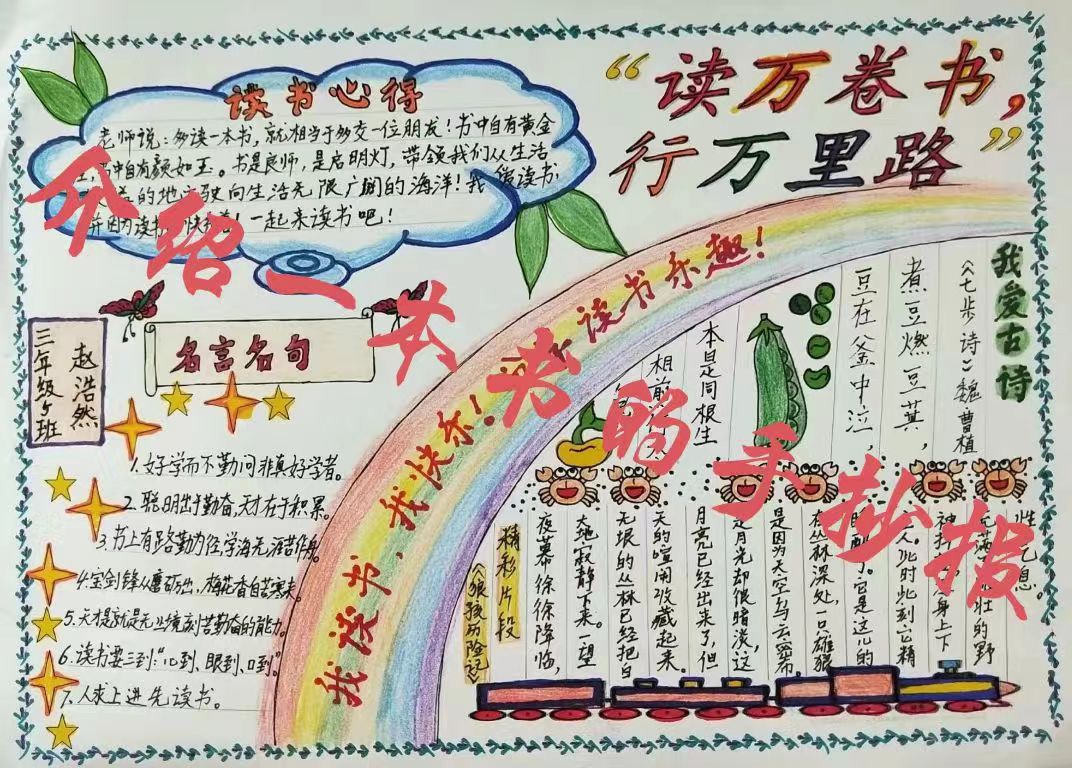 “读万卷书，
行万里路”
读书心得
老师说：多读一本书，就相当于多交一位朋友！书中自有黄金
中自有颜如玉。书是良师，是启明灯，带领我们从生活
的地 驶向生活无限广阔的海洋！我 读书
并因为读书 快 ！一起来读书吧！
介绍一本书的手抄报
三年级5班
赵浩然
名言名句
1.好学而不勤问非真好学者。
2.聪明出于勤奋，天才在于积累。
3.书上有路勤为径，学海无涯苦作舟。
4.宝剑锋从磨砺出，梅花香自苦寒来。
5.天才是就是无止境刻苦勤奋的能力。
6.读书要三到：“心到、眼到、口到”
7.人求上进先读书。
我读书，我快乐！ 读书乐趣！
我爱古诗
《七步诗》魏 曹植
煮豆燃豆萁，
豆在釜中泣，
本是同根生
相煎
精彩片段
《狼孩历险记》
夜幕徐徐降临，
大地寂静下来。一望
无垠的丛林已经把白
天的喧闹收藏起来。
月亮已经出来了，但
是月光却很暗淡，这
是因为天空乌云密布。
在丛林深处，一只雄狼
了。它是这儿的
人。此时此刻它精
神 身上下
充满 壮的野
性气息。